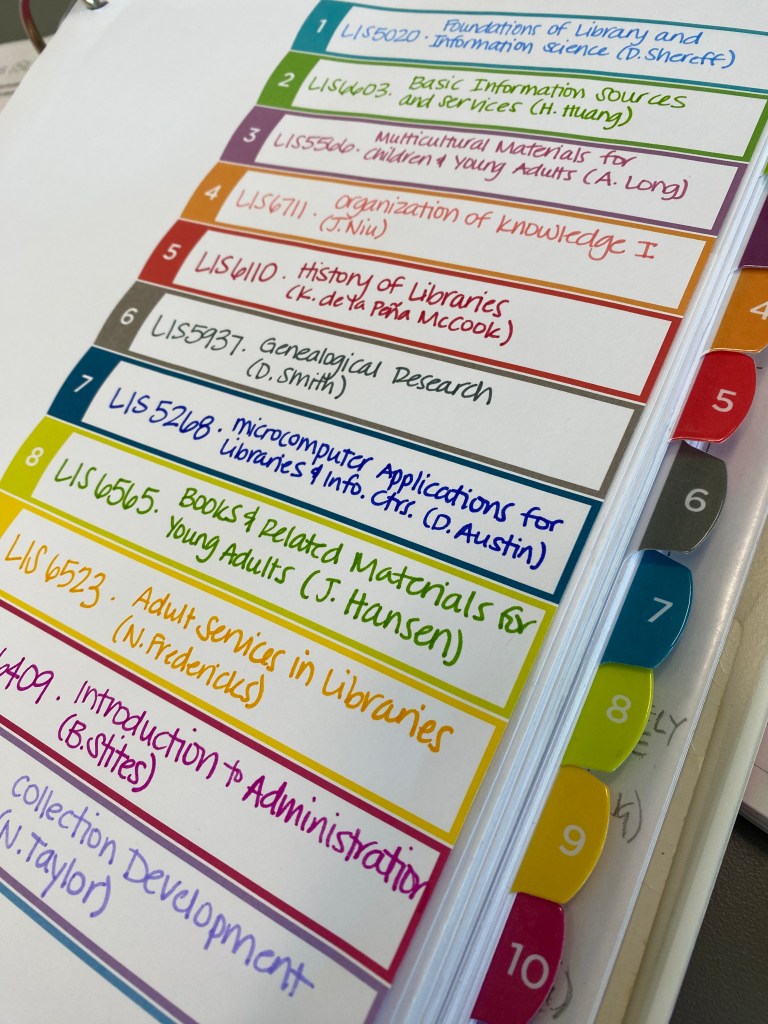 1 LIS5020. Foundations of Library and
Information science (D. Shereff)
2 LIS6603. Basic Information Sources
and services (H. Huang)
3 LIS5566. Multicultural Materials for
Children & Young Adults (A. Long)
4 LIS6711. organization of knowledge I
(J. Niu)
5 LIS6110. History of Libraries
(K. de la Peña McCook)
6 LIS5937. Genealogical Research
(D. Smith)
7 LIS 5268. microcomputer Applications for
Libraries & Info. Ctrs. (D. Austin)
8 LIS 6565. Books & Related Materials for
Young Adults (J. Hansen)
LIS 6523. Adult Services in Libraries
(N. Fredericks)
6409. Introduction to Administration
(B. Stites)
collection Development
(N. Taylor)
4
5
6
7
8
9
10